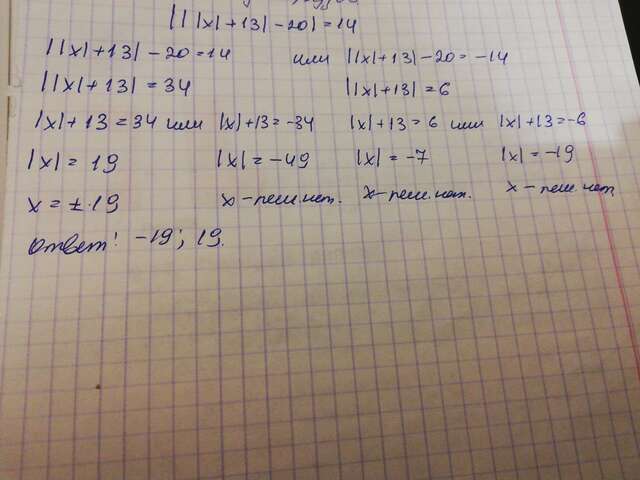 |||x|+13|-20|=14
||x|+13|-20=14 или ||x|+13|-20=-14
||x|+13|=34 ||x|+13|=6
|x|+13=34 или |x|+13=-34 |x|+13=6 или |x|+13=-6
|x|=19 |x|=-49 |x|=-7 |x|=-19
x=±19 x-реш.нет. x-реш.нет. x-реш.нет.
Ответ: -19; 19.